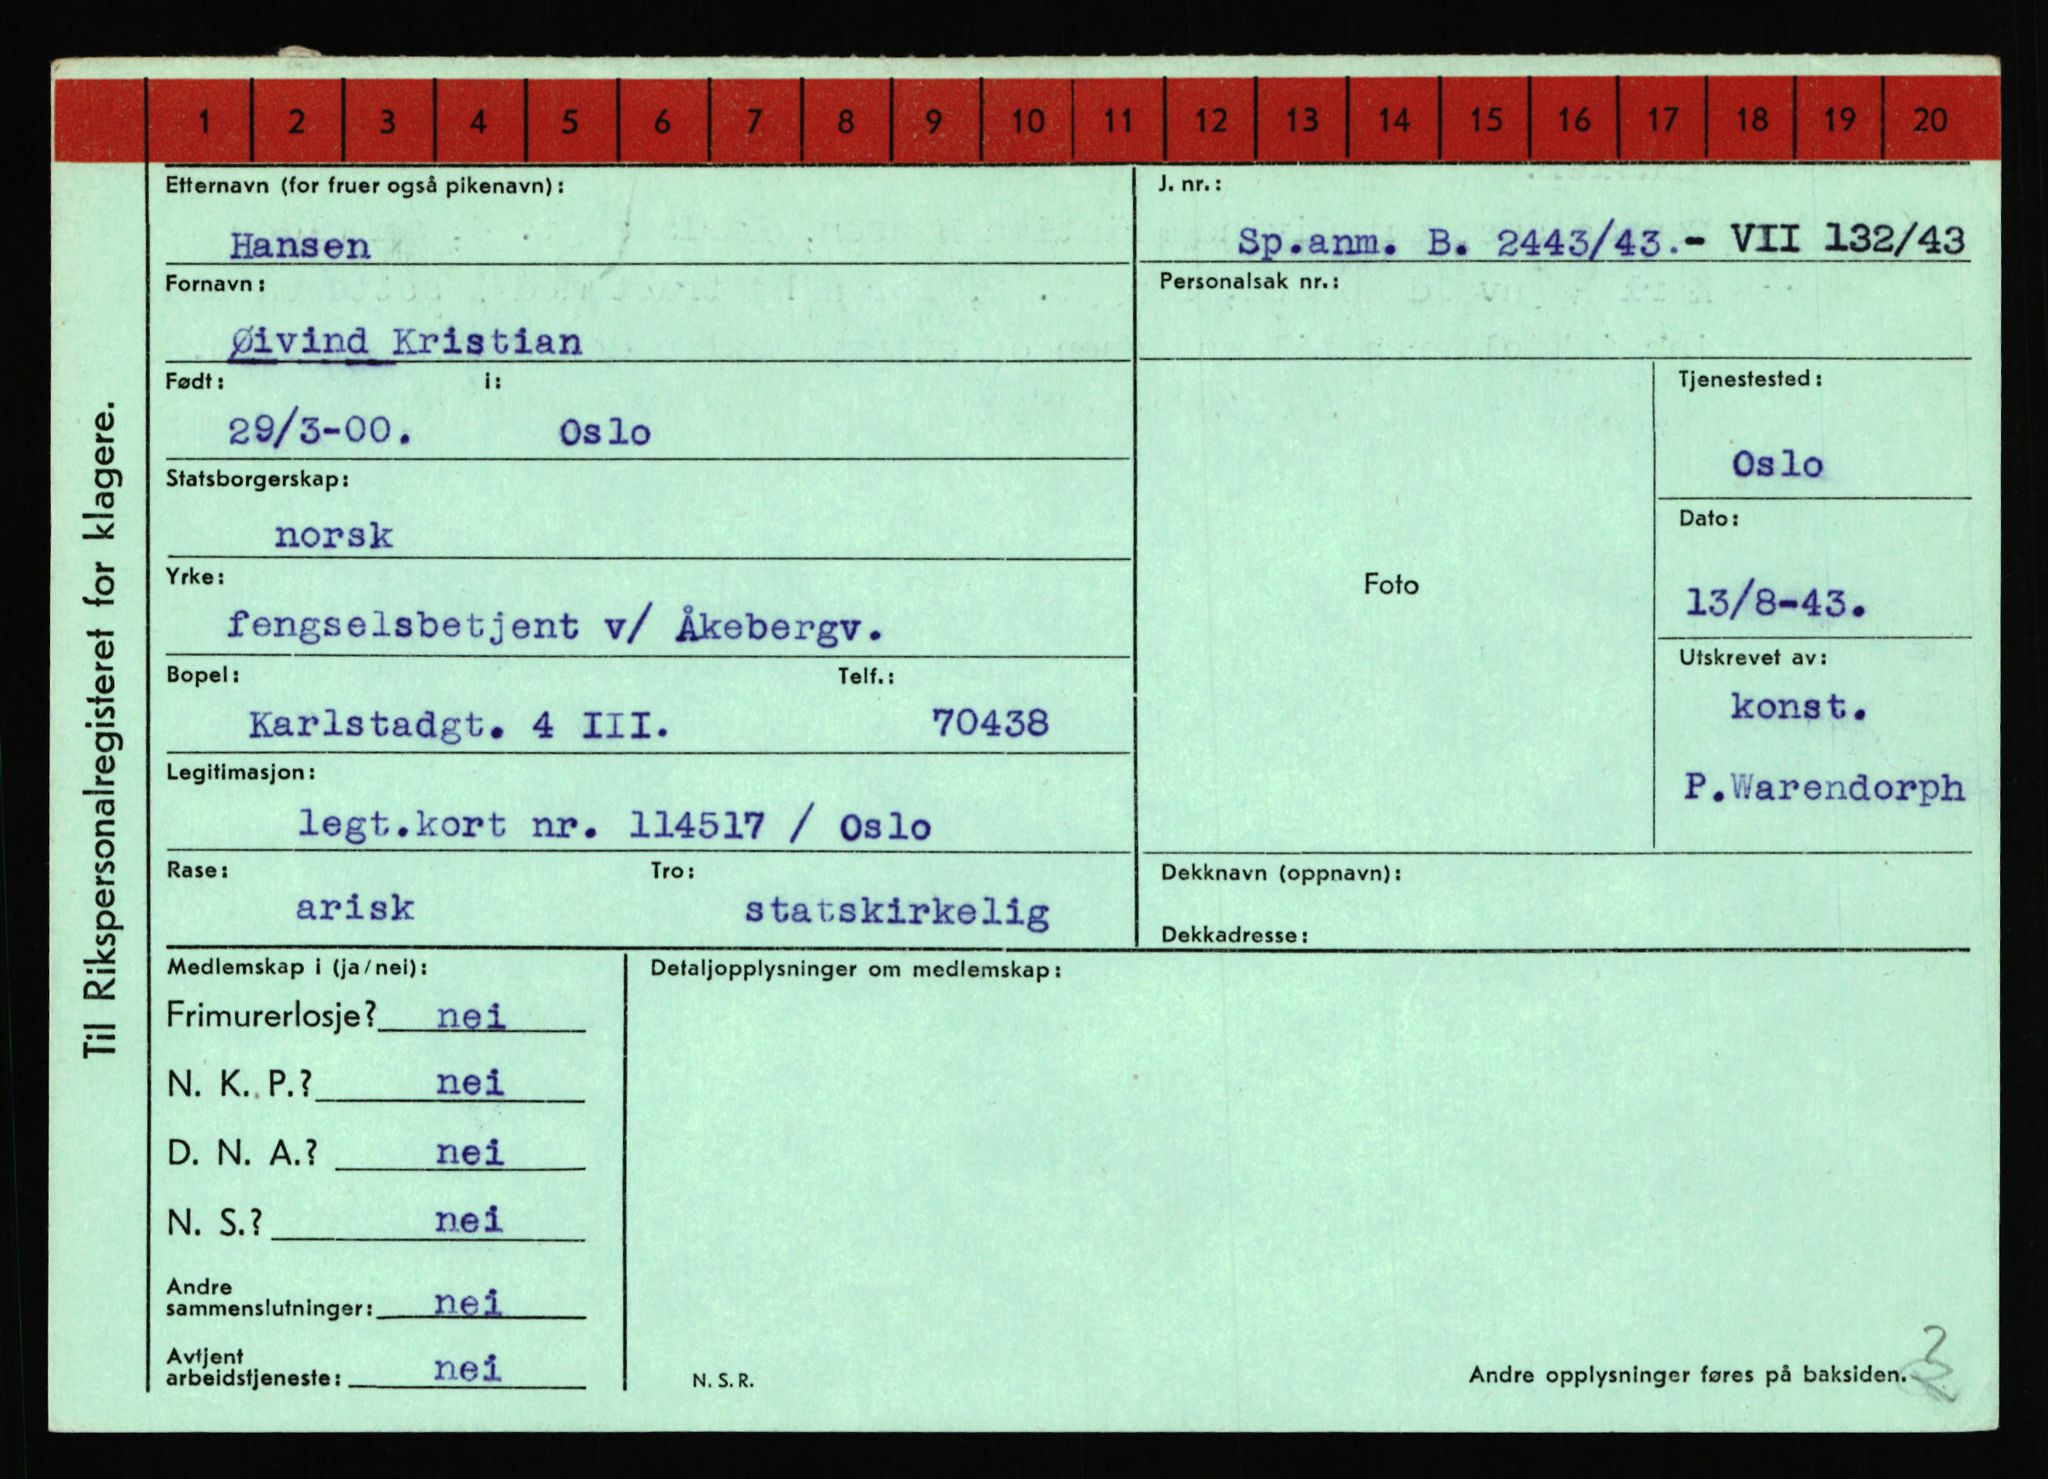 1 2 3 4 5 6 7 8 9 10 11 12 13 14 15 16 17 18 19 20
Til Rikspersonalregisteret for klagere.
Etternavn (for fruer også pikenavn):
Hansen
Fornavn:
Øivind Kristian
Født: i:
29/3-00. Oslo
Statsborgerskap:
norsk
Yrke:
fengselsbetjent v/ Åkebergv.
Bopel: Telf.:
Karlstadgt. 4 III. 70438
Legitimasjon:
legt.kort nr. 114517 / Oslo
Rase: Tro:
arisk statskirkelig
J. nr.:
Sp.anm. B. 2443/43.- VII 132/43
Personalsak nr.:
Foto
Tjenestested:
Oslo
Dato:
13/8-43.
Utskrevet av:
konst.
P.Warendorph
Dekknavn (oppnavn):
Dekkadresse:
Medlemskap i (ja/nei):
Frimurerlosje? nei
N. K. P.? nei
D. N. A.? nei
N. S.? nei
Andre
sammenslutninger: nei
Avtjent
arbeidstjeneste: nei
Detaljopplysninger om medlemskap:
N. S. R.
Andre opplysninger føres på baksiden.